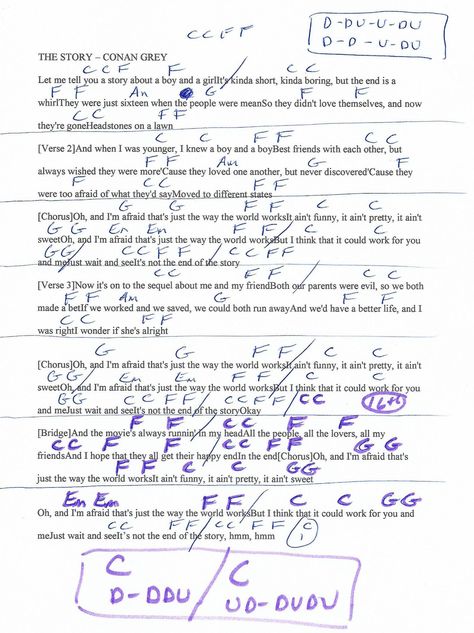 C C F F
D - DU - U - DU
D - D - U - DU
THE STORY – CONAN GREY
C C F F C C
Let me tell you a story about a boy and a girlIt's kinda short, kinda boring, but the end is a
F F Am G F
whirlThey were just sixteen when the people were meanSo they didn't love themselves, and now
C C F F
they're goneHeadstones on a lawn
C C F F C C
[Verse 2]And when I was younger, I knew a boy and a boyBest friends with each other, but
F F Am G F
always wished they were more'Cause they loved one another, but never discovered'Cause they
F C C F F
were too afraid of what they'd sayMoved to different states
G G F F / C C
[Chorus]Oh, and I'm afraid that's just the way the world worksIt ain't funny, it ain't pretty, it ain't
G G Em Em F F / C C
sweetOh, and I'm afraid that's just the way the world worksBut I think that it could work for you
G G / C C F F / C C F F
and meJust wait and seeIt's not the end of the story
C C F F / C C
[Verse 3]Now it's on to the sequel about me and my friendBoth our parents were evil, so we both
F F Am G F F
made a betIf we worked and we saved, we could both run awayAnd we'd have a better life, and I
C C F F
was rightI wonder if she's alright
G G F F / C C
[Chorus]Oh, and I'm afraid that's just the way the world worksIt ain't funny, it ain't pretty, it ain't
G G Em Em F F / C C
sweetOh, and I'm afraid that's just the way the world worksBut I think that it could work for you
G G C C F F / C C F F / C C 16th
and meJust wait and seeIt's not the end of the storyOkay
F F / C C F F
[Bridge]And the movie's always runnin' in my headAll the people, all the lovers, all my
C C F F / C C F F G G
friendsAnd I hope that they all get their happy endIn the end[Chorus]Oh, and I'm afraid that's
F F C C G G
just the way the world worksIt ain't funny, it ain't pretty, it ain't sweet
Em Em F F / C C G G
Oh, and I'm afraid that's just the way the world worksBut I think that it could work for you and
C C F F / C C F F / C 1
meJust wait and seeIt's not the end of the story, hmm, hmm
C / C
D - DDU / UD - DUDU